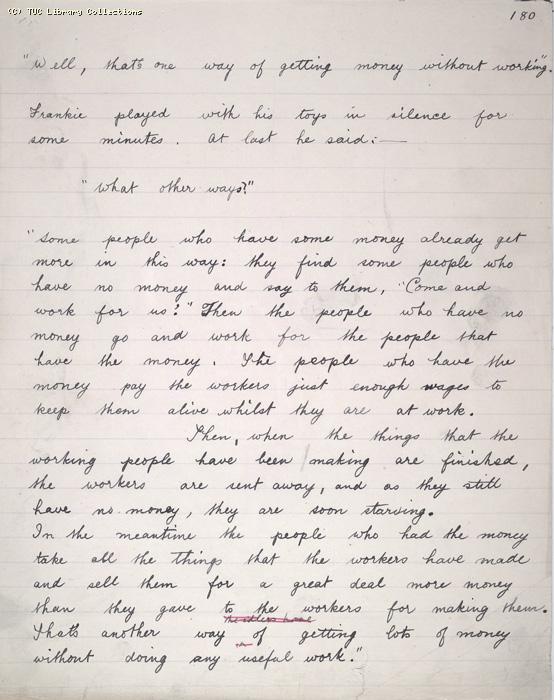 (C) TUC Library Collections
180
"Well, thats one way of getting money without working".
Frankie played with his toys in silence for
some minutes. At last he said:—
"What other ways?"
"Some people who have some money already get
more in this way: they find some people who
have no money and say to them, "Come and
work for us?" Then the people who have no
money go and work for the people that
have the money. The people who have the
money pay the workers just enough wages to
keep them alive whilst they are at work.
Then, when the things that the
working people have been making are finished,
the workers are sent away, and as they still
have no money, they are soon starving.
In the meantime the people who had the money
take all the things that the workers have made
and sell them for a great deal more money
than they gave to the workers for making them.
Thats another way of getting lots of money
without doing any useful work."